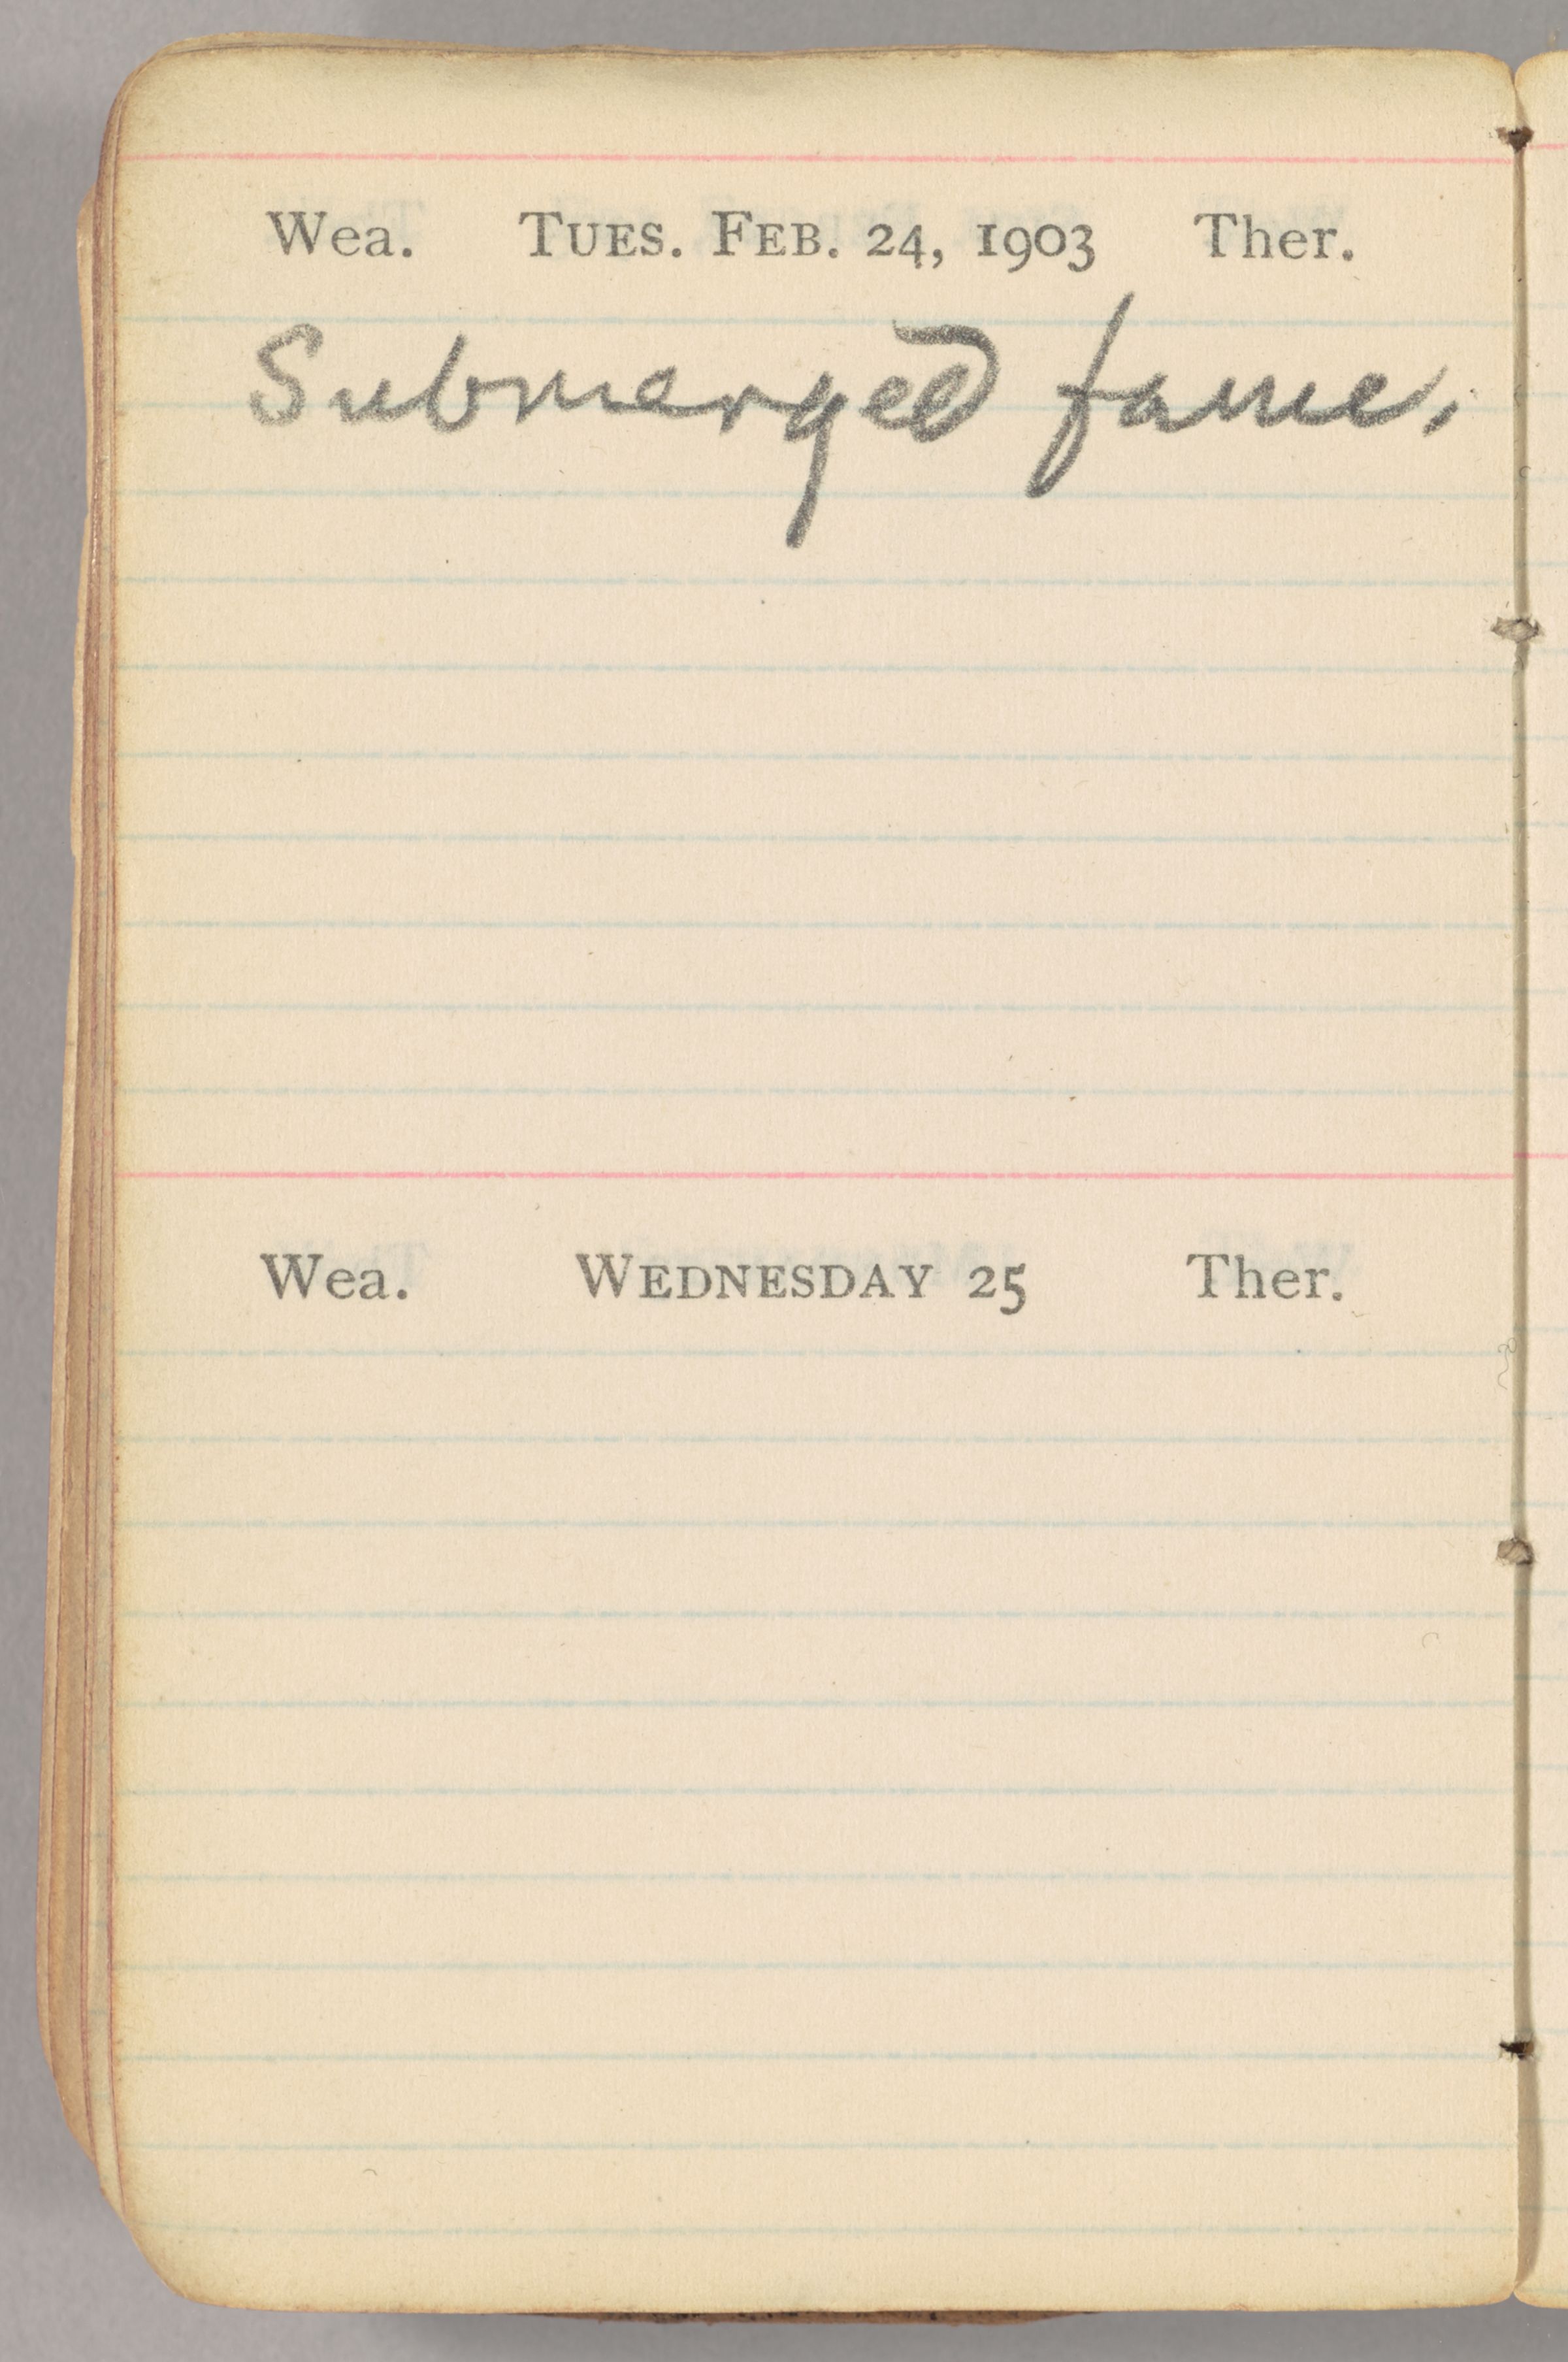 Wea. TUES. FEB. 24, 1903 Ther.
Submerged fame.
Wea. WEDNESDAY 25 Ther.